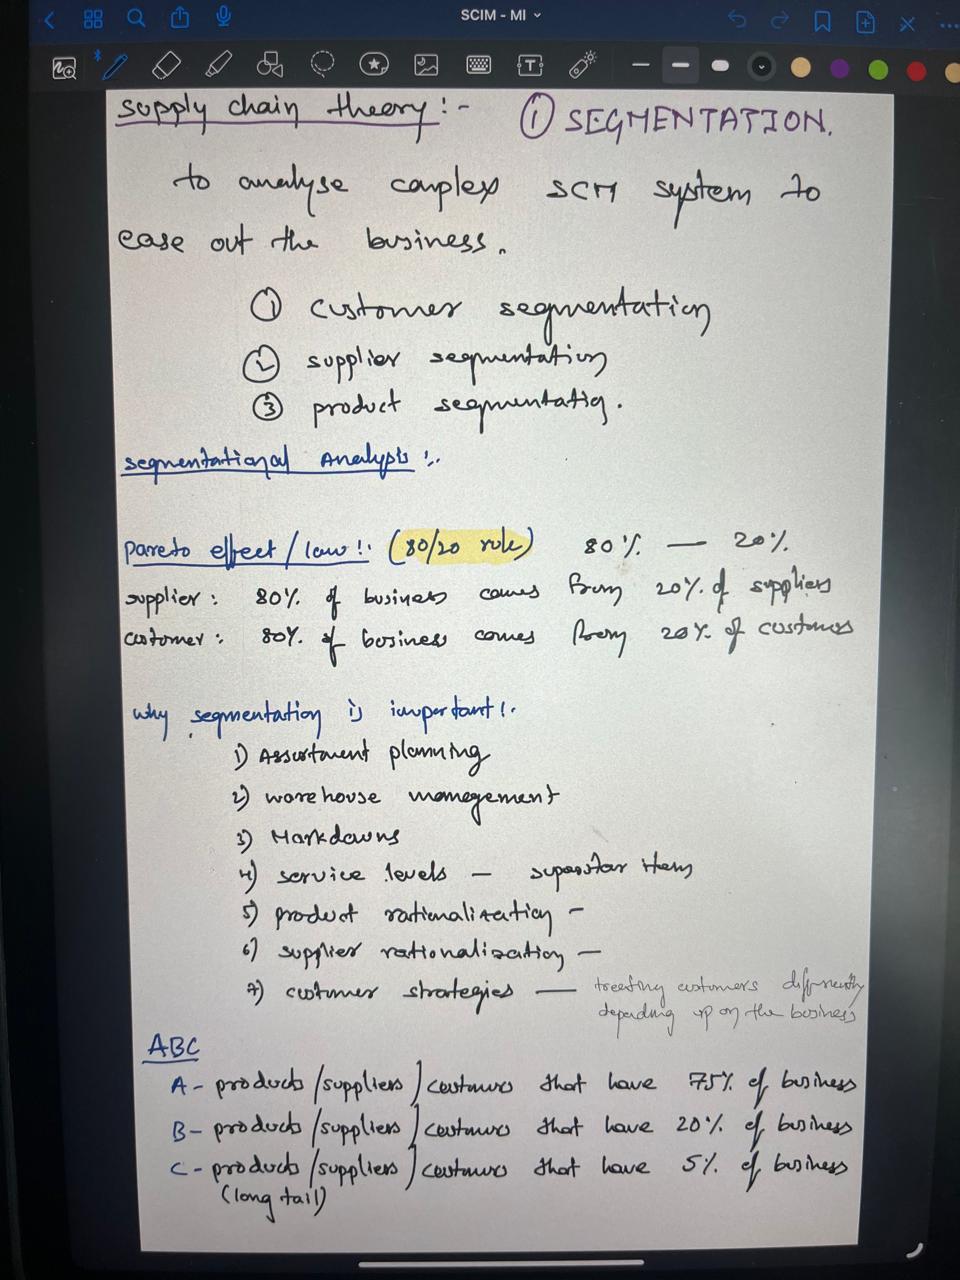 SCIM - MI
supply chain theory :- ① SEGMENTATION.
to analyse complex SCM system to
ease out the business.
① customer segmentation
② supplier segmentation
③ product segmentation.
segmentational Analysis :-
pareto effect / law :- (80/20 rule) 80% — 20%
supplier : 80% of business comes from 20% of suppliers
customer : 80% of business comes from 20% of customers
why segmentation is important :-
1) Assortment planning
2) warehouse management
3) Markdowns
4) service levels — superstar items
5) product rationalization -
6) supplier rationalization —
7) customer strategies — treating customers differently
depending up on the business
ABC
A - products /suppliers / customers that have 75% of business
B - products /suppliers / customers that have 20% of business
C - products /suppliers / customers that have 5% of business
(long tail)